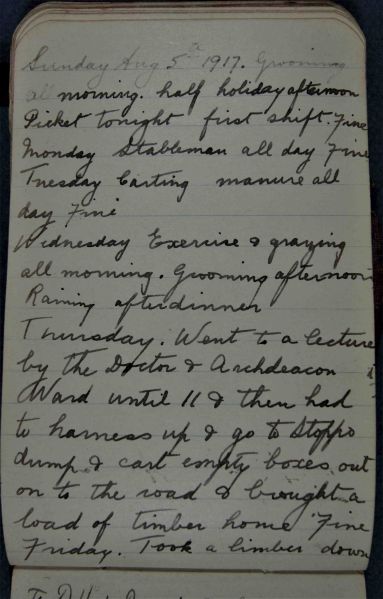 Sunday Aug 5th 1917. Grooming
all morning. half holiday afternoon
Picket tonight first shift. Fine
Monday Stableman all day Fine
Tuesday Carting manure all
day Fine
Wednesday Exercise & grazing
all morning. Grooming afternoon
Raining after dinner
Thursday. Went to a lecture
by the Doctor & Archdeacon
Ward until 11 & then had
to harness up & go to Stopps
dump & cart empty boxes out
on to the road & brought a
load of timber home Fine
Friday. Took a limber down